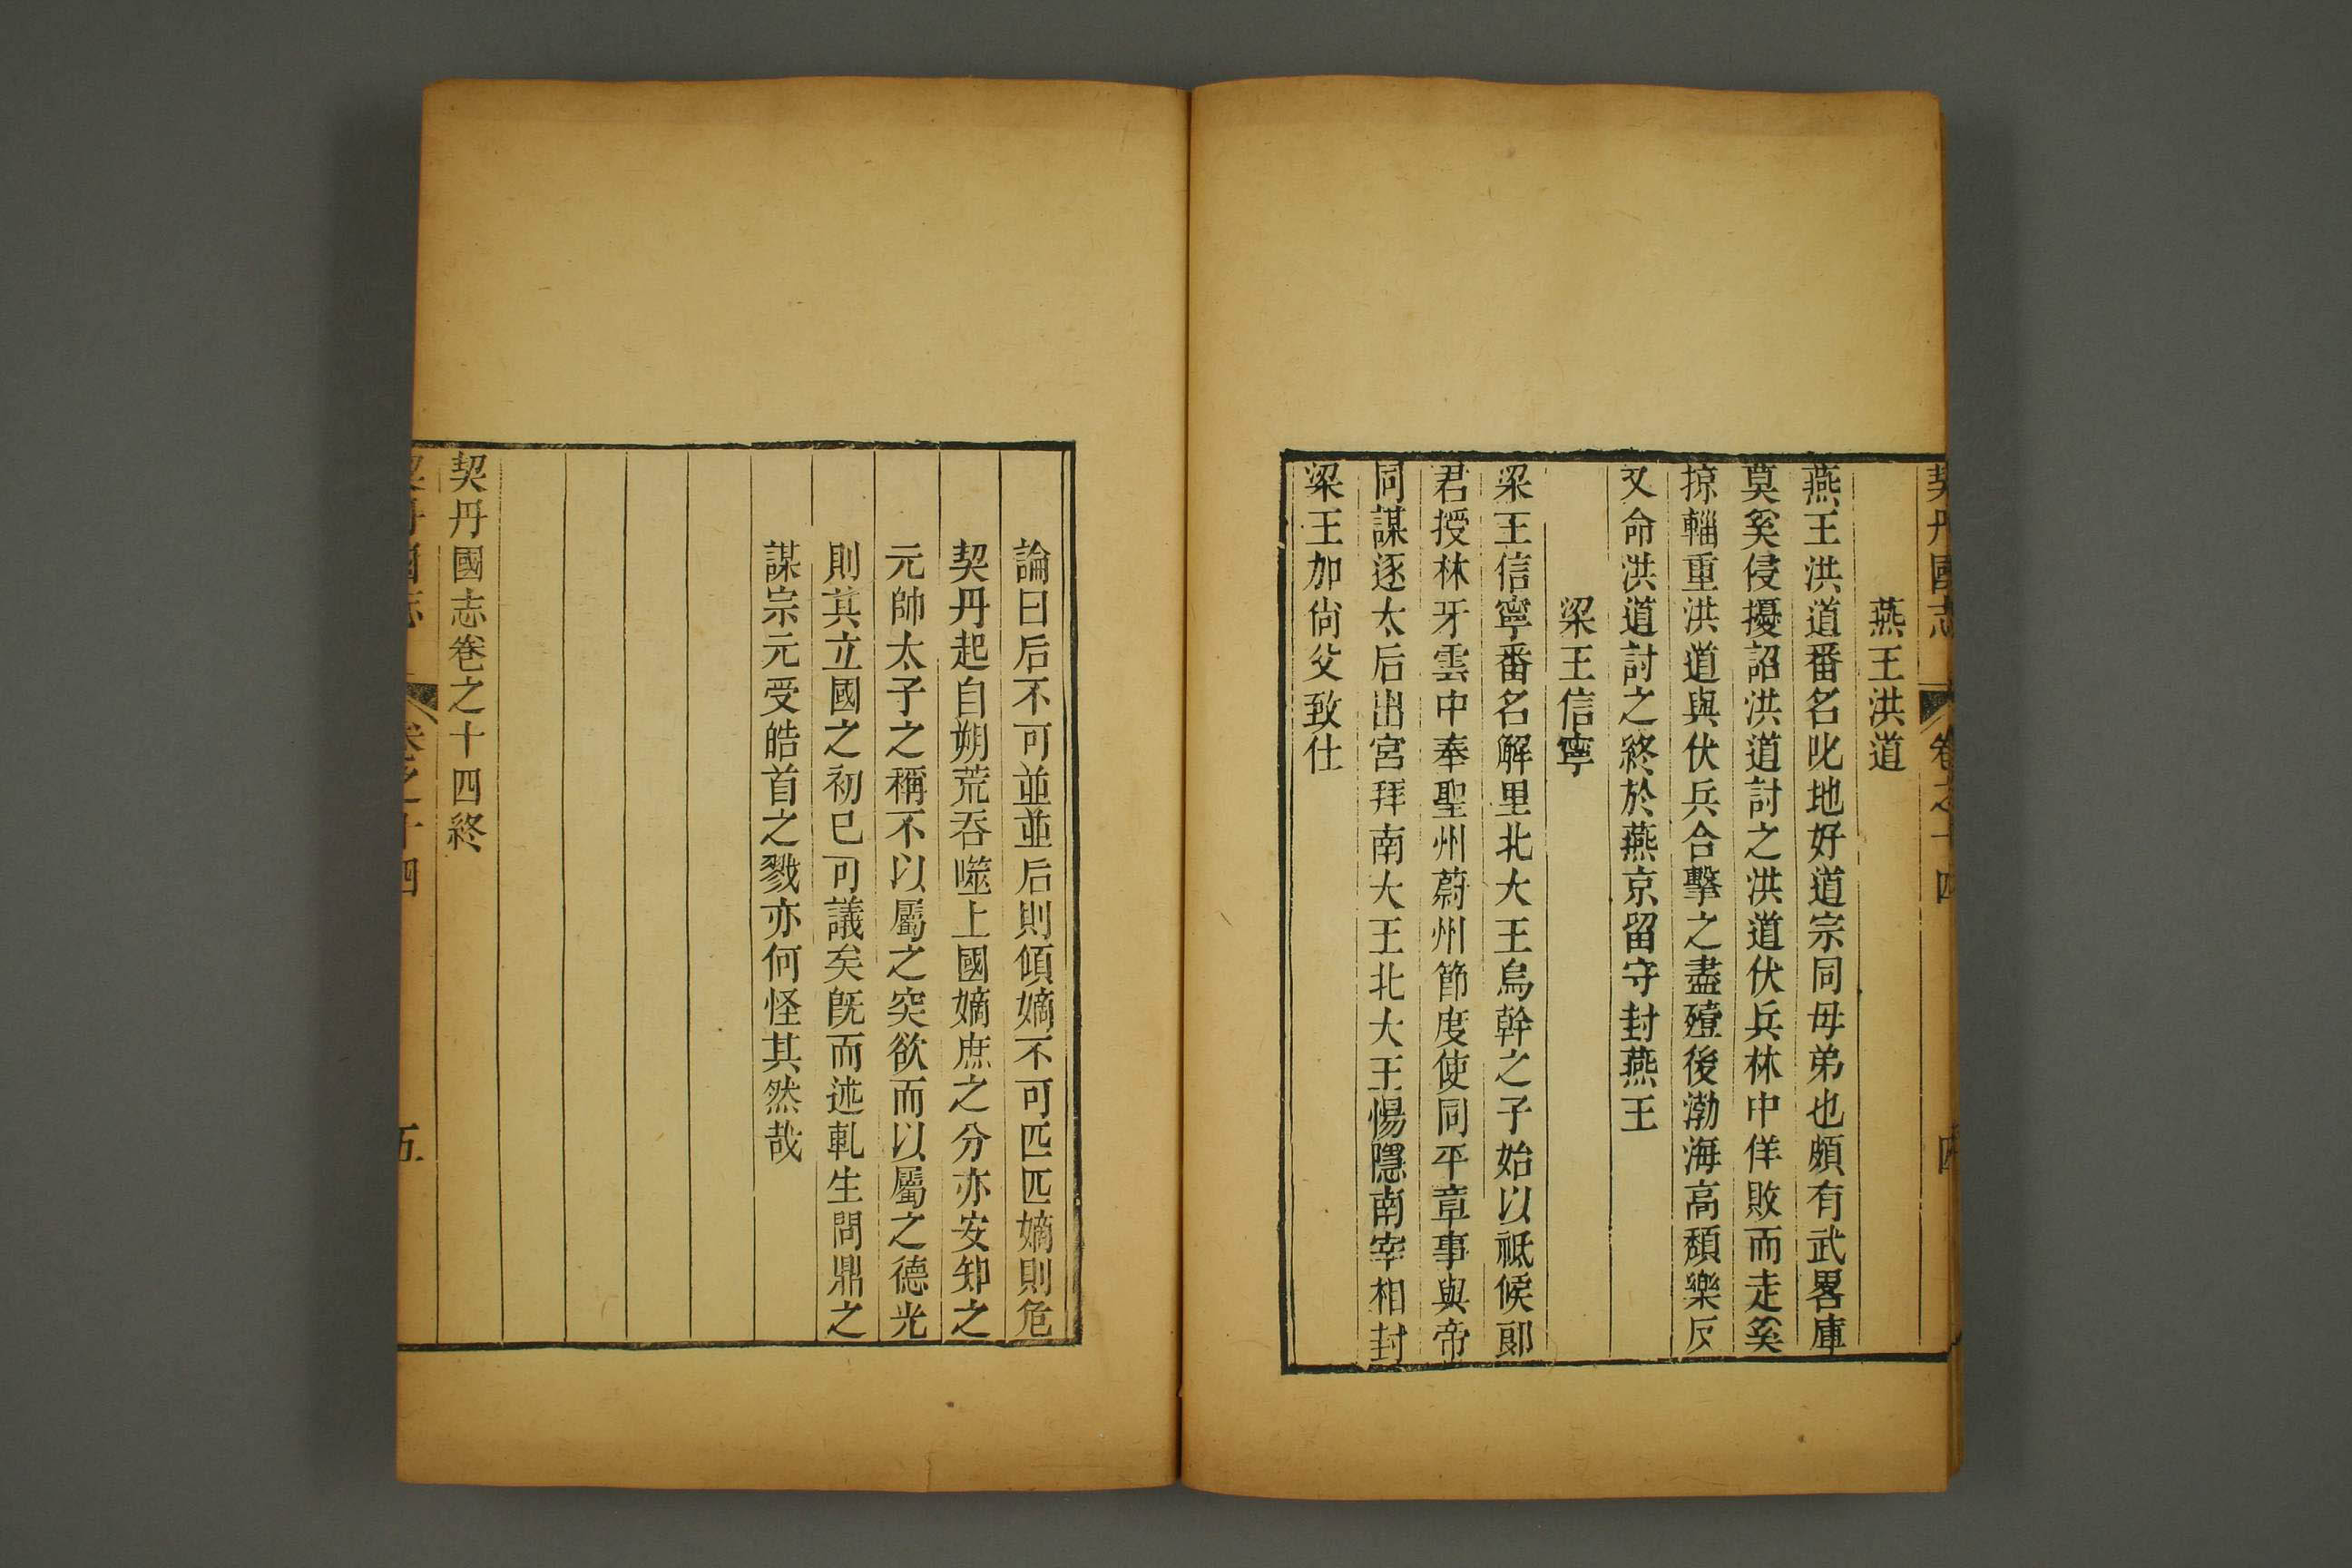 契丹國志
卷之十四
四
燕王洪道
燕王洪道番名叱地好道宗同母弟也頗有武畧庫
莫奚侵擾詔洪道討之洪道伏兵林中佯敗而走奚
掠輜重洪道與伏兵合擊之盡殪後渤海高頽樂反
又命洪道討之終於燕京留守封燕王
梁王信寧
梁王信寧番名解里北大王烏幹之子始以祗候郞
君授林牙雲中奉聖州蔚州節度使同平章事與帝
同謀逐太后出宮拜南大王北大王惕隱南宰相封
梁王加尙父致仕
論曰后不可並並后則傾嫡不可匹匹嫡則危
契丹起自朔荒吞噬上國嫡庶之分亦安知之
元帥太子之稱不以屬之突欲而以屬之德光
則其立國之初已可議矣旣而述軋生問鼎之
謀宗元受皓首之戮亦何怪其然哉
契丹國志卷之十四終
契丹國志
卷之十四
五